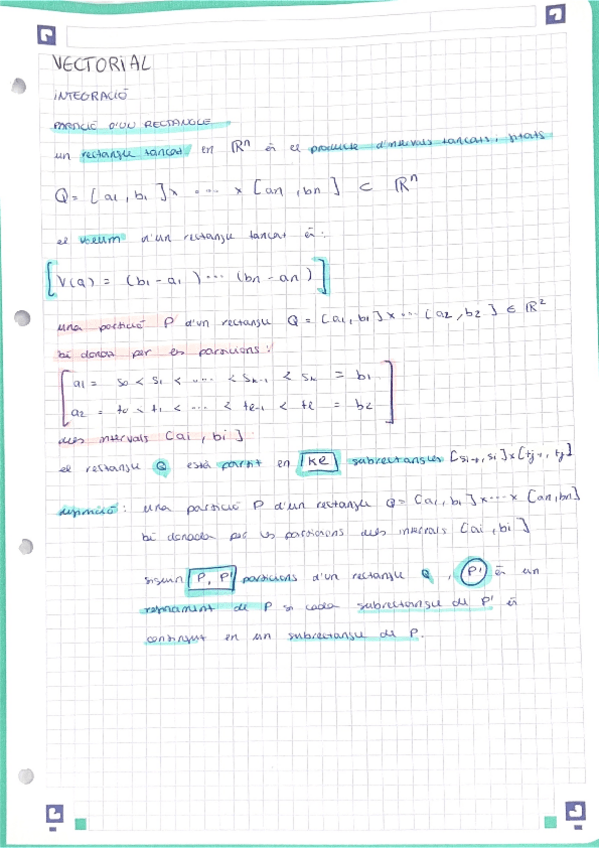 VECTORIAL
INTEGRACIÓ
PARTICIÓ D'UN RECTANGLE
un rectangle tancat en ℝⁿ és el producte d'intervals tancats i fitats
Q = [a₁, b₁] × ... × [an, bn] ⊂ ℝⁿ
el volum d'un rectangle tancat és:
V(Q) = (b₁ - a₁) ... (bn - an)
una partició P d'un rectangle Q = [a₁, b₁] × ... [a₂, b₂] ∈ ℝ²
bé donada per les particions:
a₁ = s₀ < s₁ < ... < sₖ₋₁ < sₖ = b₁
a₂ = t₀ < t₁ < ... < tℓ₋₁ < tℓ = b₂
dels intervals [ai, bi].
el rectangle Q està partit en kℓ subrectangles [si-1, si] × [tj-1, tj]
definició: una partició P d'un rectangle Q = [a₁, b₁] × ... × [an, bn]
bé donada per les particions dels intervals [ai, bi]
siguin P, P' particions d'un rectangle Q, P' és un
refinament de P si cada subrectangle de P' és
contingut en un subrectangle de P.